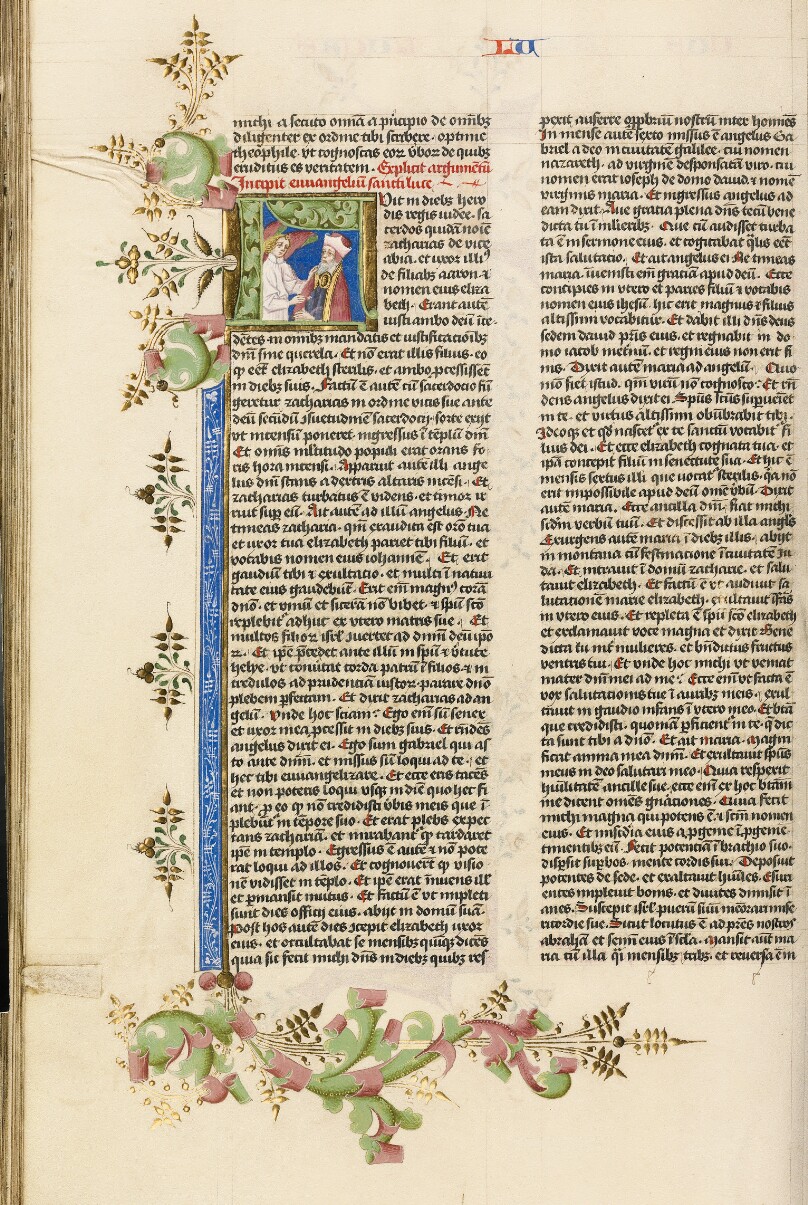 LU
michi a secuto oīnia a pͥncipio de omībꝫ
diligenter ex ordine tibi scribere · optime
theophile · vt cognoscas eoꝝ v̓boꝝ de quibꝫ
eruditus es veritatem · Explicit argumētū
Incipit euuangeliū sancti luce
Fuit in diebꝫ hero
dis regis iudee · sa
cerdos quidā noīe
zacharias de vice
abia · et vxor illiꝰ
de filiabꝫ aaron · ⁊
nomen eius eliza
beth · Erant autē
iusti ambo ante deū ·
dētes in omībꝫ mandatis et iustificacioībꝫ
dn̄i sine querela · Et nō erat illis filius · eo
ꝙ eēt elizabeth sterilis · et ambo p̱cessissēt
in diebꝫ suis · Factū ē autē cū sacerdocio fū
geretur zacharias in ordine vicis sue ante
deū secūdū ꝯsuetudinē sacerdocij · sorte exijt
vt incensū poneret · ingressus ī tēplū dn̄i ·
Et omīs ml̓titudo populi erat orans fo
ris hora incensi · Apparuit autē illi ange
lus dn̄i stans a dextris altaris incēsi · Et
zacharias turbatus ē videns · et timor ir
ruit sup̱ eū · Ait autē ad illū angelus · Ne
timeas zacharia · qm̄ exaudita est orō tua
et vxor tua elizabeth pariet tibi filiū · et
vocabis nomen eius iohannē · Et erit
gaudiū tibi ⁊ exultatio · et multi ī natiui
tate eius gaudebūt · Erit em̄ magnꝰ corā
dn̄o · et vinū et siceram nō bibet · ⁊ spū scō
replebit̉ adhuc ex vtero matris sue · Et
multos filioꝝ isrl̓ ꝯuertet ad dn̄m deū ip̄o
ꝝ · Et ip̄e p̄cedet ante illū in spū ⁊ v̓tute
helye · vt conuertat corda patrū ī filios · ⁊ in
credulos ad prudenciā iustoꝝ · parare dn̄o
plebem ꝑfectam · Et dixit zacharias ad an
gelū · Vnde hoc sciam · Ego em̄ sū senex
et vxor mea p̱cessit in diebꝫ suis · Et rn̄dēs
angelus dixit ei · Ego sum gabriel qui as
to ante deū · et missus sū loqui ad te · et
hec tibi euuangelizare · Et ecce eris tacēs
et non poteris loqui vsqꝫ in diē quo hec fi
ant · ꝓ eo ꝙ nō credidisti v̓bis meis que ī
plebūt̉ in tēpore suo · Et erat plebs expec
tans zachariā · et mirabant̉ ꝙ tardaret
ip̄e in templo · Egressus ē autē ⁊ nō pote
rat loqui ad illos · Et cognouer̄t ꝙ visio
nē vidisset in tēplo · Et ip̄e erat īnuens ill̓
et ꝑmansit mutus · Et factū ē vt impleti
sunt dies officij eius · abijt in domū suā ·
Post hos autē dies ꝯcepit elizabeth vxor
eius · et occultabat se mensibꝫ quīqꝫ dicēs
quia sic fecit michi dn̄s in diebꝫ quibꝫ res
pexit auferre opprobriū nostrū inter homīes
In mense autē sexto missus ē angelus Ga
briel a deo in ciuitatē galilee · cui nomen
nazareth · ad virginē desponsatā viro · cui
nomen erat ioseph de domo dauid · ⁊ nomē
virginis maria · Et ingressus angelus ad
eam dixit · Aue gratia plena dn̄s tecū bene
dicta tu ī mulieribꝫ · Que cū audisset turba
ta ē in sermone eius · et cogitabat qualis eēt
ista salutacio · Et ait angelus ei · Ne timeas
maria · īuenisti em̄ gratiā apud deū · Ecce
concipies in vtero et paries filiū ⁊ vocabis
nomen eius ihesū · hic erit magnus ⁊ filius
altissimi vocabitur · Et dabit illi dn̄s deus
sedem dauid pr̄is eius · et regnabit in do
mo iacob ineternū · et regni eius non erit fi
nis · Dixit autē maria ad angelū · Quo
mō fiet istud · qm̄ virū nō cognosco · Et rn̄
dens angelus dixit ei · Spūs scūs sup̱ueniet
in te · et virtus altissimi obūbrabit tibi ·
Ideoqꝫ et qd̓ nascet̉ ex te sanctū vocabit̉ fi
lius dei · Et ecce elizabeth cognata tua · et
ip̄a concepit filiū in senectute sua · Et hic ē
mensis sextus illi que vocat̉ sterilis · qa nō
erit impossibile apud deū omē v̓bū · Dixit
autē maria · Ecce ancilla dn̄i · fiat michi
scd̄m verbū tuū · Et discessit ab illa angelꝰ
Exurgens autē maria ī diebꝫ illis · abijt
in montana cū festinacione ī ciuitatē iu
da · Et intrauit ī domū zacharie · et salu
tauit elizabeth · Et factū ē vt audiuit sa
lutacionē marie elizabeth · exultauit īfās
in vtero eius · Et repleta ē spū scō elizabeth
et exclamauit voce magna et dixit · Bene
dicta tu int̓ mulieres · et bn̄dictus fructus
ventris tui · Et vnde hoc michi vt veniat
mater dn̄i mei ad me · Ecce em̄ vt facta ē
vox salutacionis tue ī auribꝫ meis · exul
tauit in gaudio infans ī vtero meo · Et btā
que credidisti · quoniā ꝑficient̉ in te · q̄ dic
ta sunt tibi a dn̄o · Et ait maria · Magni
ficat anima mea dn̄m · Et exultauit spūs
meus in deo salutari meo · Quia respexit
hūilitatē ancille sue · ecce em̄ ex hoc btām
me dicent omēs gn̄aciones · Quia fecit
michi magna qui potens ē · ⁊ scm̄ nomen
eius · Et misc̓dia eius a ꝓgenie ī ꝓgenies
timentibꝫ eū · Fecit potenciā ī brachio suo ·
disp̱sit suꝑbos mente cordis sui · Deposuit
potentes de sede · et exaltauit hūiles · Esuri
entes impleuit bonis · et diuites dimisit ī
anes · Suscepit isrl̓ puerū suū · recordatus mise
ricordie sue · Sicut locutus ē ad p̄res nostros
abrahā et semī eius ī sc̄la · Mansit aūt ma
ria cū illa q̄si mensibꝫ tribꝫ · et reuersa ē in